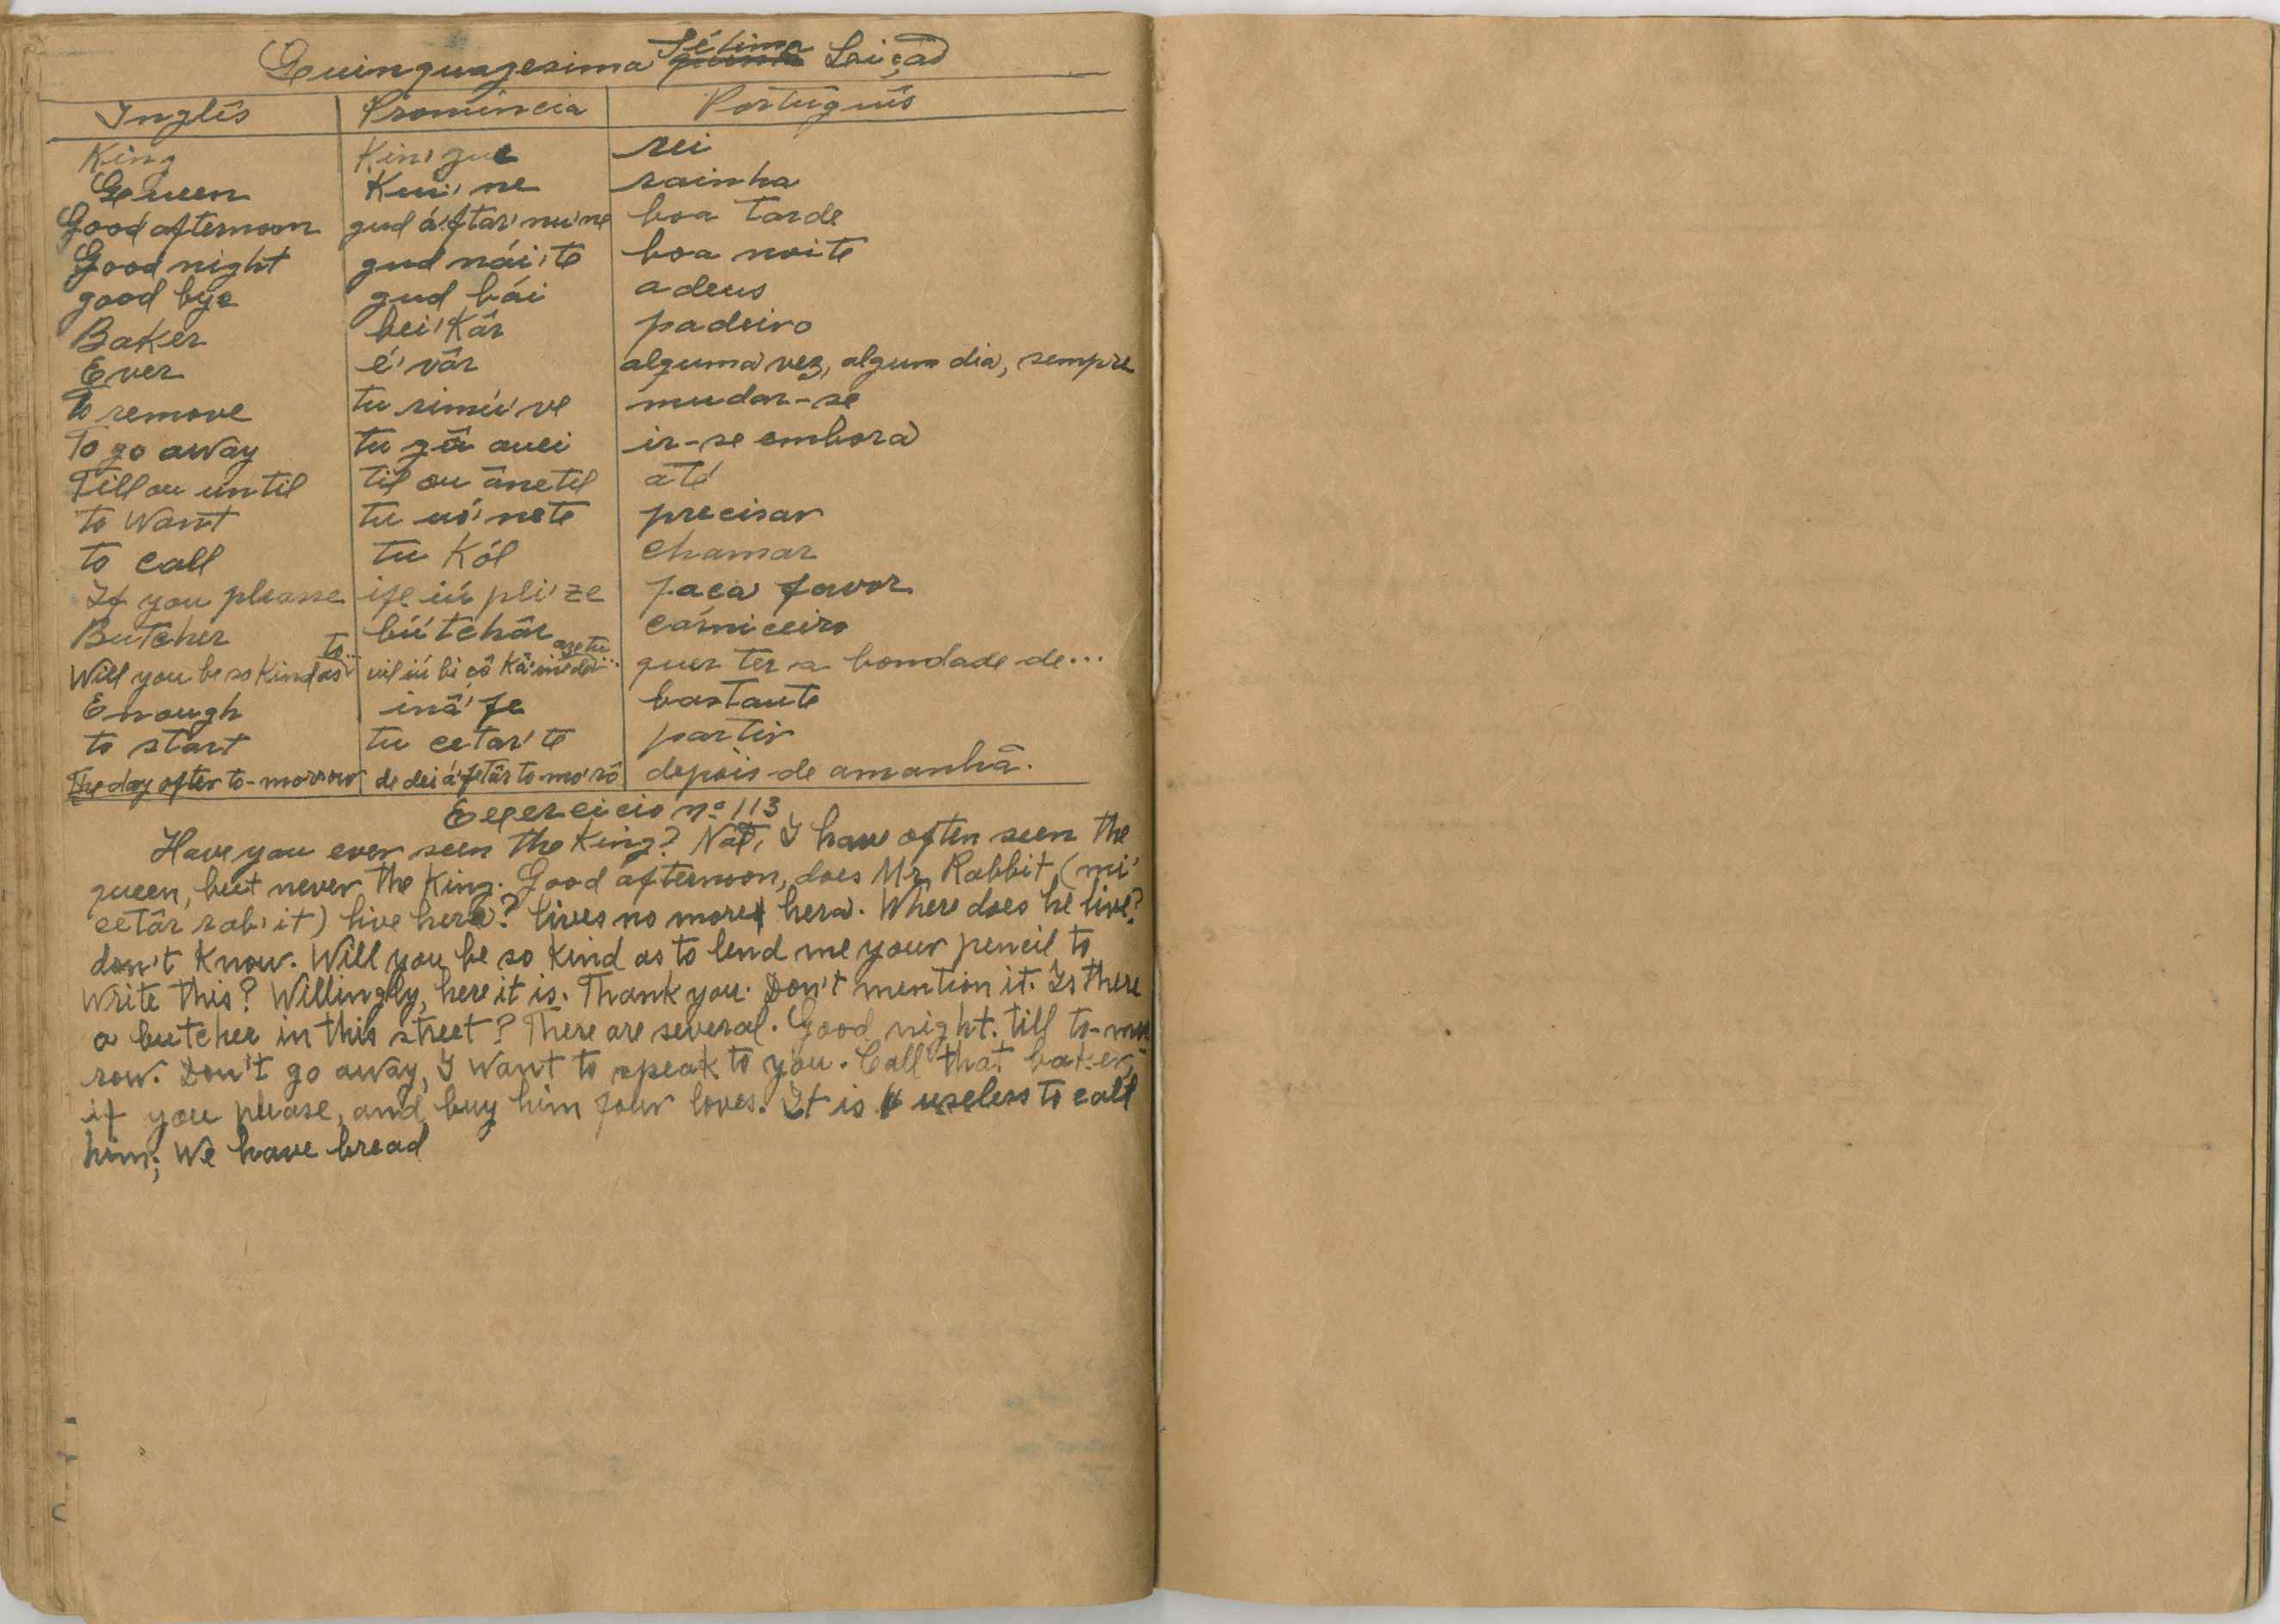 Quinquagesima Sétima Leição
Inglês Pronúncia Português
King Kin'gue rei
Queen Kuí'ne rainha
Good afternoon gud á'ftar'nu'ne boa tarde
Good night gud nái'te boa noite
good bye gud bái adeus
Baker bei'Kâr padeiro
Ever é'vâr alguma vez, algum dia, sempre
To remove tu rimú've mudar-se
To go away tu gô auei ir-se embora
Till ou until til ou ânetil até
to Want tu uó'nete precisar
to call tu Kól chamar
If you pleasse ife iú pli'ze faca favor
Butcher bú'tchâr carniceiro
Will you be so Kind as to... uil iú bi çô Kâ'inede aze tu... quer ter a bondade de...
Enough inâ'fe bastante
to start tu cetar'te partir
The day after to-morrow de dei á'fetâr to-mo'rô depois de amanhã.
Exercicio nº 113
Have you ever seen the King? Not, I have often seen the
queen, but never the King. Good afternoon, does Mr. Rabbit (mi'
cetâr rab'it) live here? lives no more here. Where does he live?
don't Know. Will you be so Kind as to lend me your pencil to
Write this? Willingly, here it is. Thank you. Don't mention it. Is there
a butcher in this street? There are several. Good night. till to-mor
row. Don't go away, I want to speak to you. Call that baker,
if you please, and buy him four loves. It is useless to call
him; We have bread